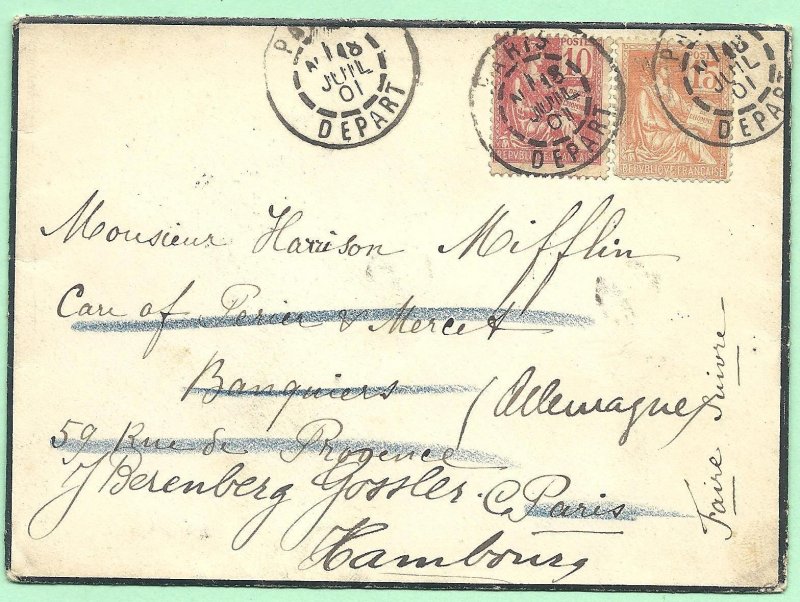 PARIS
18
JUIL
01
DEPART
POSTE
10
REPVBLIQVE FRANCAISE
PARIS
18
JUIL
01
DEPART
POSTE
15
REPVBLIQVE FRANÇAISE
PARIS
18
JUIL
01
DEPART
Monsieur Harrison Mifflin
Care of Perier & Mercet
Banquiers
(Allemagne)
59 Rue de Provence
Berenberg Gossler Co
Paris
Hambourg
Faire Suivre